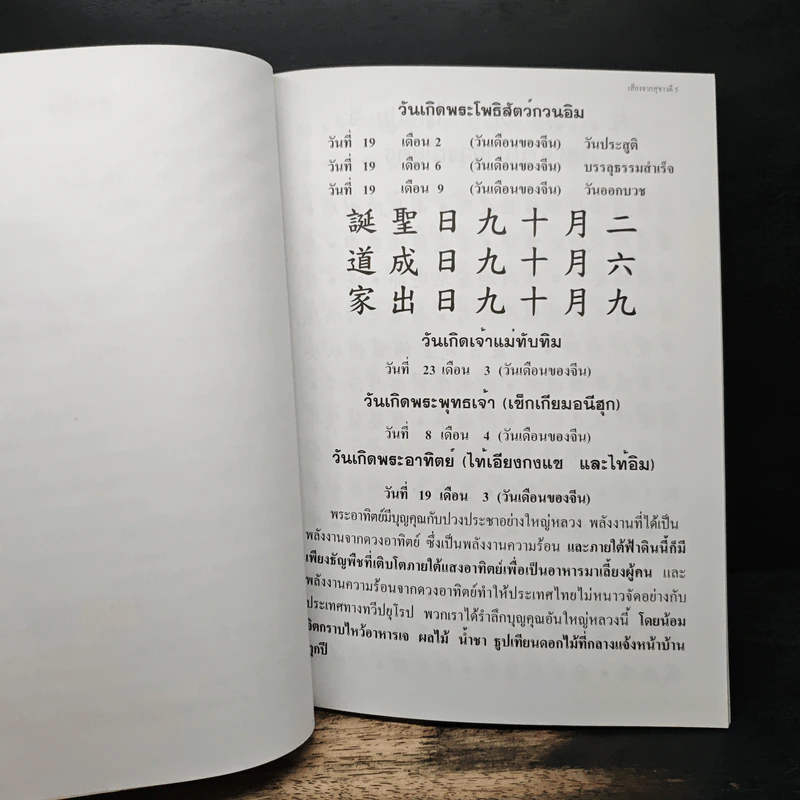 เสียงจากสุขาวดี 5
วันเกิดพระโพธิสัตว์กวนอิม
วันที่ 19 เดือน 2 (วันเดือนของจีน) วันประสูติ
วันที่ 19 เดือน 6 (วันเดือนของจีน) บรรลุธรรมสำเร็จ
วันที่ 19 เดือน 9 (วันเดือนของจีน) วันออกบวช
誕聖日九十月二
道成日九十月六
家出日九十月九
วันเกิดเจ้าแม่ทับทิม
วันที่ 23 เดือน 3 (วันเดือนของจีน)
วันเกิดพระพุทธเจ้า (เซ็กเกียมอนีฮุก)
วันที่ 8 เดือน 4 (วันเดือนของจีน)
วันเกิดพระอาทิตย์ (ไท้เอียงกงแซ และไท้อิม)
วันที่ 19 เดือน 3 (วันเดือนของจีน)
พระอาทิตย์มีบุญคุณกับปวงประชาอย่างใหญ่หลวง พลังงานที่ได้เป็น
พลังงานจากดวงอาทิตย์ ซึ่งเป็นพลังงานความร้อน และภายใต้ฟ้าดินนี้ก็มี
เพียงธัญพืชที่เติบโตภายใต้แสงอาทิตย์เพื่อเป็นอาหารมาเลี้ยงผู้คน และ
พลังงานความร้อนจากดวงอาทิตย์ทำให้ประเทศไทยไม่หนาวจัดอย่างกับ
ประเทศทางทวีปยุโรป พวกเราได้รำลึกบุญคุณอันใหญ่หลวงนี้ โดยน้อม
จิตกราบไหว้อาหารเจ ผลไม้ น้ำชา ธูปเทียนดอกไม้ที่กลางแจ้งหน้าบ้าน
ทุกปี